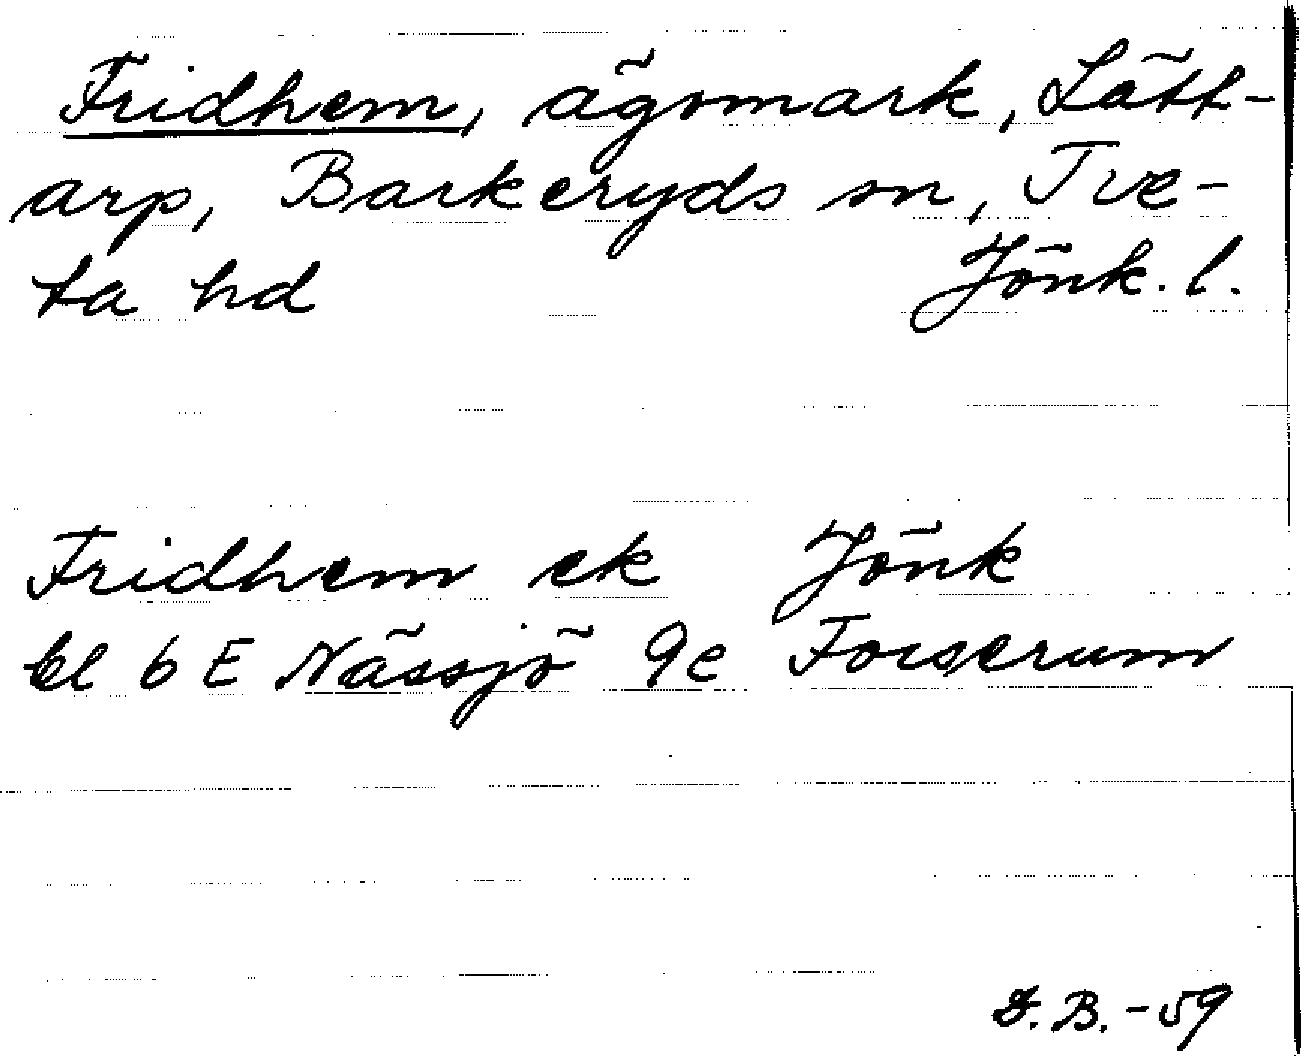 Fridhem, ägomark, Lätt-
arp, Barkeryds sn, Tve-
ta hd Jönk. l.
Fridhem ek Jönk
bl 6 E Nässjö 9e Forserum
B. -59